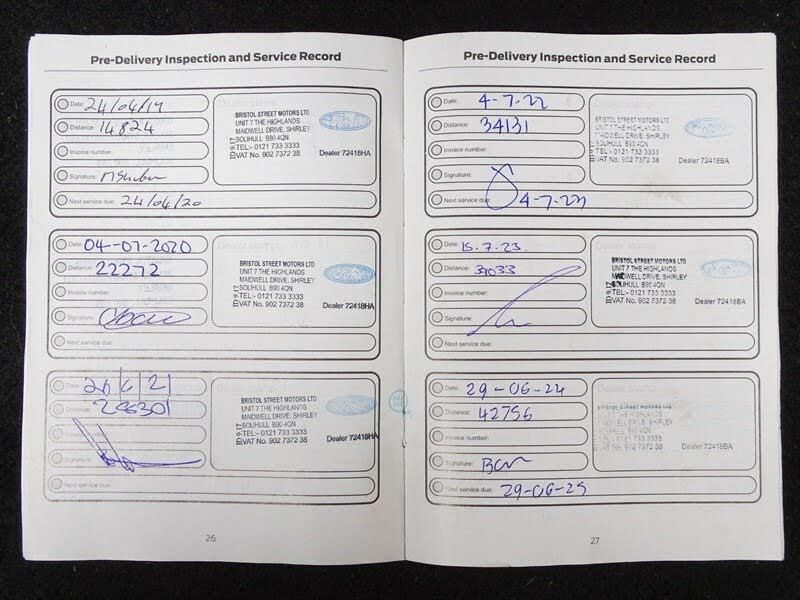 Pre-Delivery Inspection and Service Record
Dealer stamp
Date: 24/04/19
Distance: 14824
Invoice number:
Signature:
Next service due: 24/04/20
BRISTOL STREET MOTORS LTD
UNIT 7 THE HIGHLANDS
MAIDWELL DRIVE, SHIRLEY
SOLIHULL B90 4QN
TEL:- 0121 733 3333
VAT No. 902 7372 38
ID 9.17
Ford
Dealer 72418HA
Dealer stamp
Date: 04-07-2020
Distance: 22272
Invoice number:
Signature:
Next service due:
BRISTOL STREET MOTORS LTD
UNIT 7 THE HIGHLANDS
MAIDWELL DRIVE, SHIRLEY
SOLIHULL B90 4QN
TEL:- 0121 733 3333
VAT No. 902 7372 38
ID 9.17
Ford
Dealer 72418HA
Date: 26/6/21
Distance:
Invoice number:
Signature:
Next service due:
BRISTOL STREET MOTORS LTD
UNIT 7 THE HIGHLANDS
MAIDWELL DRIVE, SHIRLEY
SOLIHULL B90 4QN
TEL:- 0121 733 3333
VAT No. 902 7372 38
ID 9.17
Ford
Dealer 72418HA
26
Pre-Delivery Inspection and Service Record
Dealer stamp
Date: 4-7-22
Distance: 34131
Invoice number:
Signature:
Next service due: 4-7-23
BRISTOL STREET MOTORS LTD
UNIT 7 THE HIGHLANDS
MAIDWELL DRIVE, SHIRLEY
SOLIHULL B90 4QN
TEL:- 0121 733 3333
VAT No. 902 7372 38
ID 9.17
Ford
Dealer 72418BA
Dealer stamp
Date: 15.7.23.
Distance: 39033
Invoice number:
Signature:
Next service due:
BRISTOL STREET MOTORS LTD
UNIT 7 THE HIGHLANDS
MAIDWELL DRIVE, SHIRLEY
SOLIHULL B90 4QN
TEL:- 0121 733 3333
VAT No. 902 7372 38
Ford
Dealer 72418BA
Dealer stamp
Date: 29-06-24
Distance: 42756
Invoice number:
Signature:
Next service due: 29-06-25
UNIT 7 THE HIGHLANDS
MAIDWELL DRIVE, SHIRLEY
SOLIHULL B90 4QN
TEL:- 0121 733 3333
VAT No. 902 7372 38
Dealer 72418BA
27